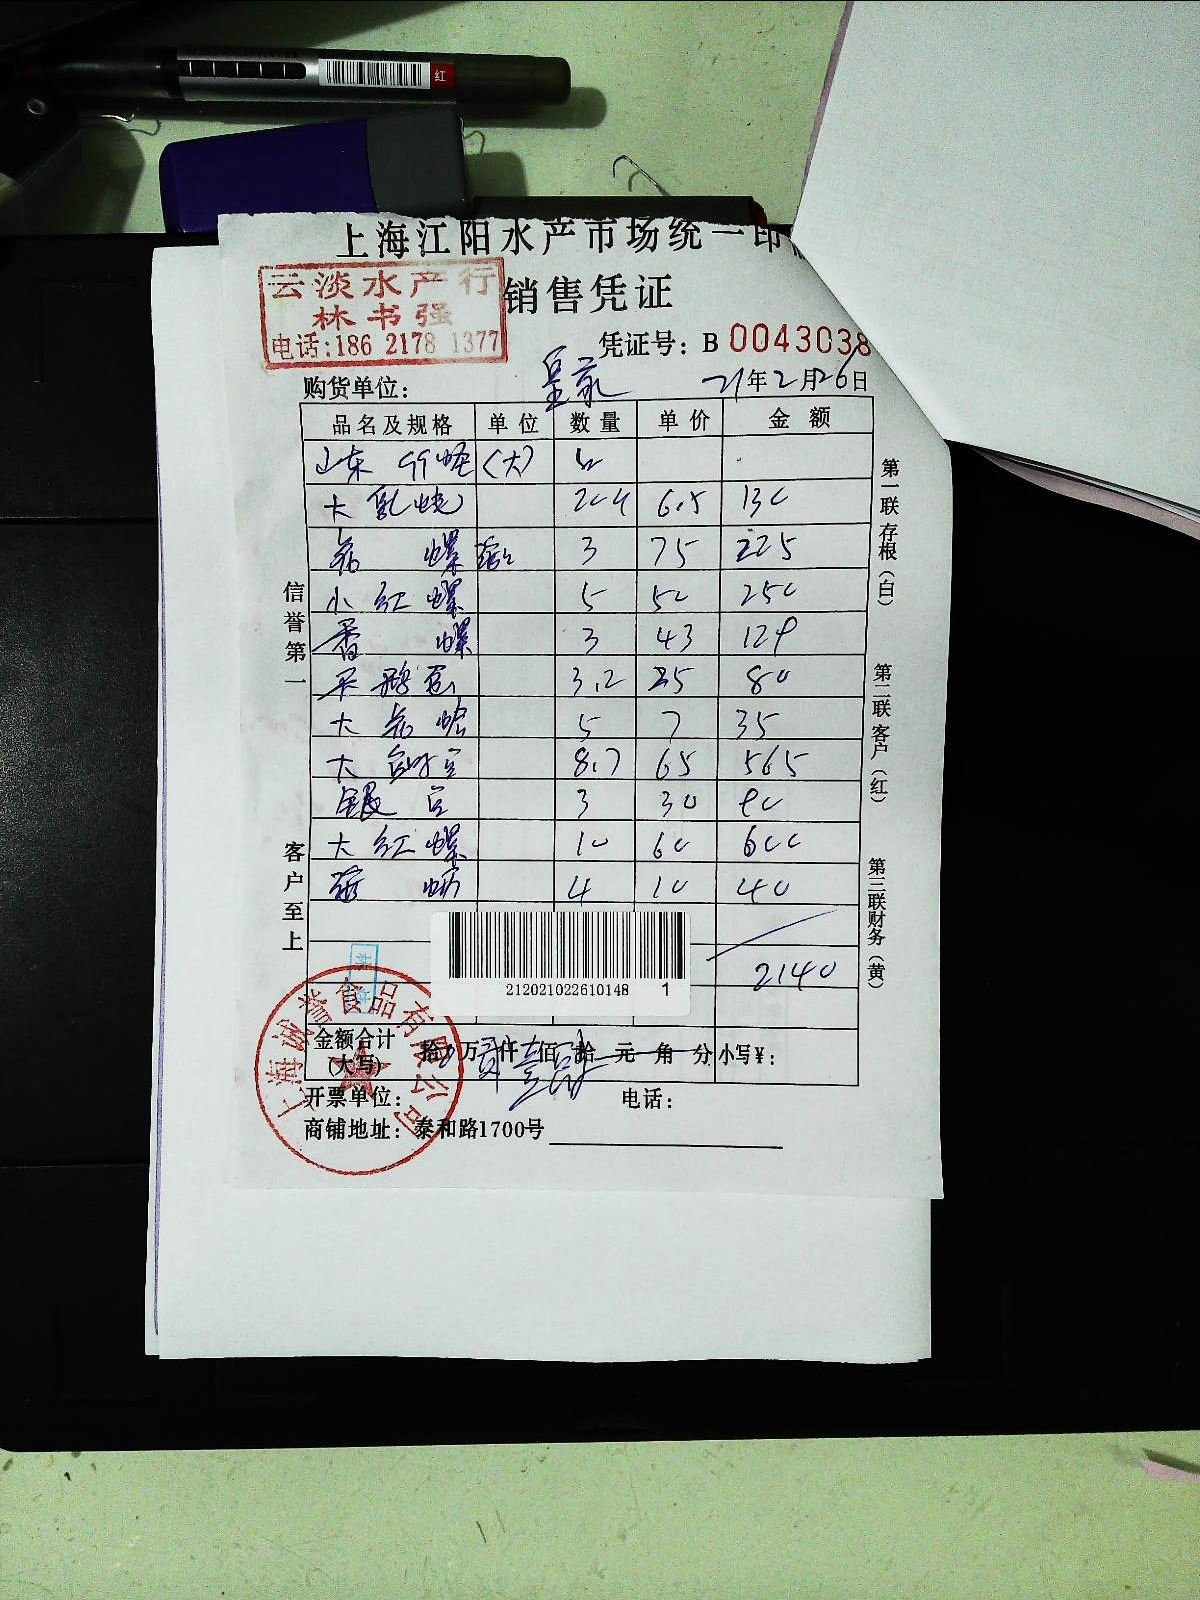 红
上海江阳水产市场统一印
云淡水产行
林书强
电话:186 2178 1377
销售凭证
凭证号: B 0043038
购货单位: 皇家 21年2月26日
品名及规格 单位 数量 单价 金额
山东 (大)
大 6.5 130
螺 3 75 225
小红螺 5 50 250
香螺 3 43 129
3.2 25 80
大 5 7 35
大 8.7 65 565
银 3 30 90
大红螺 10 60 600
4 10 40
2140
212021022610148 1
金额合计
(大写)
拾 万 贰 仟 壹 佰 肆 拾 元 角 分 小写¥:
开票单位: 电话:
商铺地址: 泰和路1700号
信誉第一
客户至上
第一联存根(白)
第二联客户(红)
第三联财务(黄)
上海诚誉食品有限公司